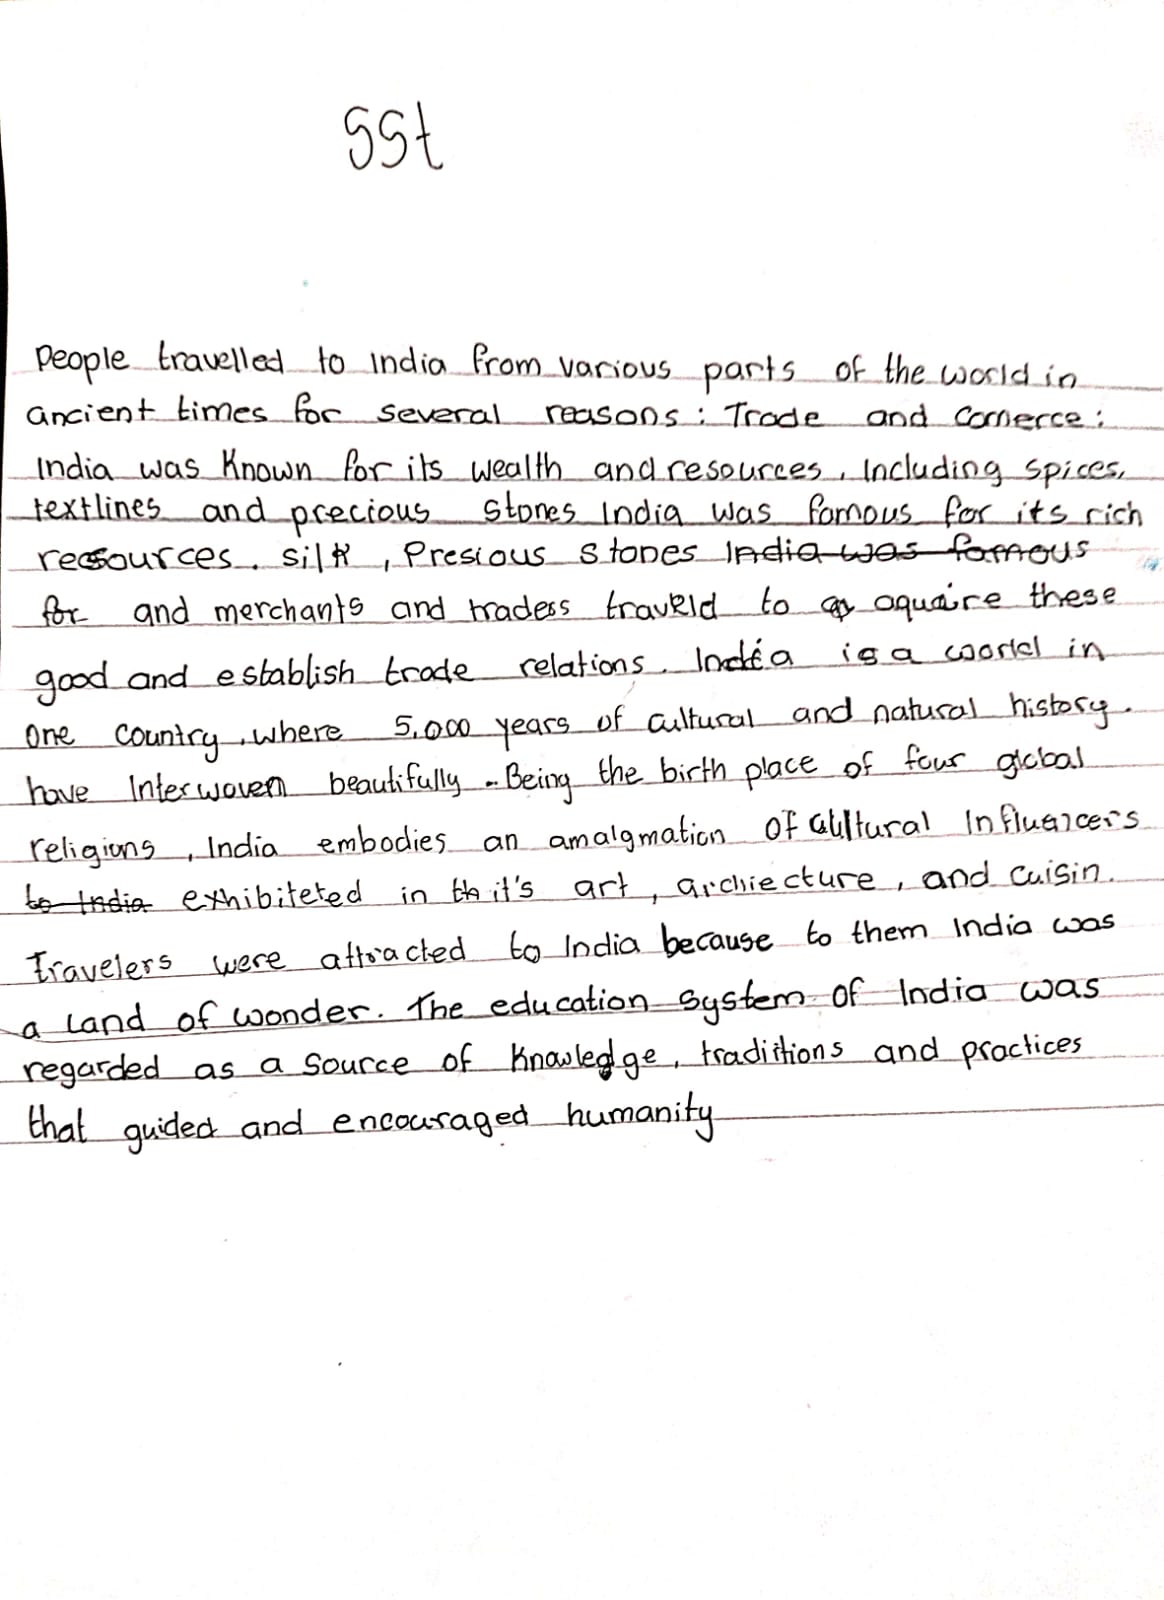 SSt
People travelled to India from various parts of the world in
ancient times for several reasons : Trade and Comerce :
India was Known for its wealth and resources, Including spices,
textlines and precious stones India was famous for its rich
resources. silk, Presious stones India was famous
for and merchants and tradess traveld to aquaire these
good and establish trade relations. India is a world in
One country, where 5,000 years of cultural and natural history.
have Interwoven beautifully. Being the birth place of four global
religions, India embodies an amalgmation of cultural Influencers
to India exhibiteted in it's art, archiecture, and cuisin.
Travelers were attracted to India because to them India was
a land of wonder. The education system of India was
regarded as a source of Knowledge, traditions and practices
that guided and encouraged humanity